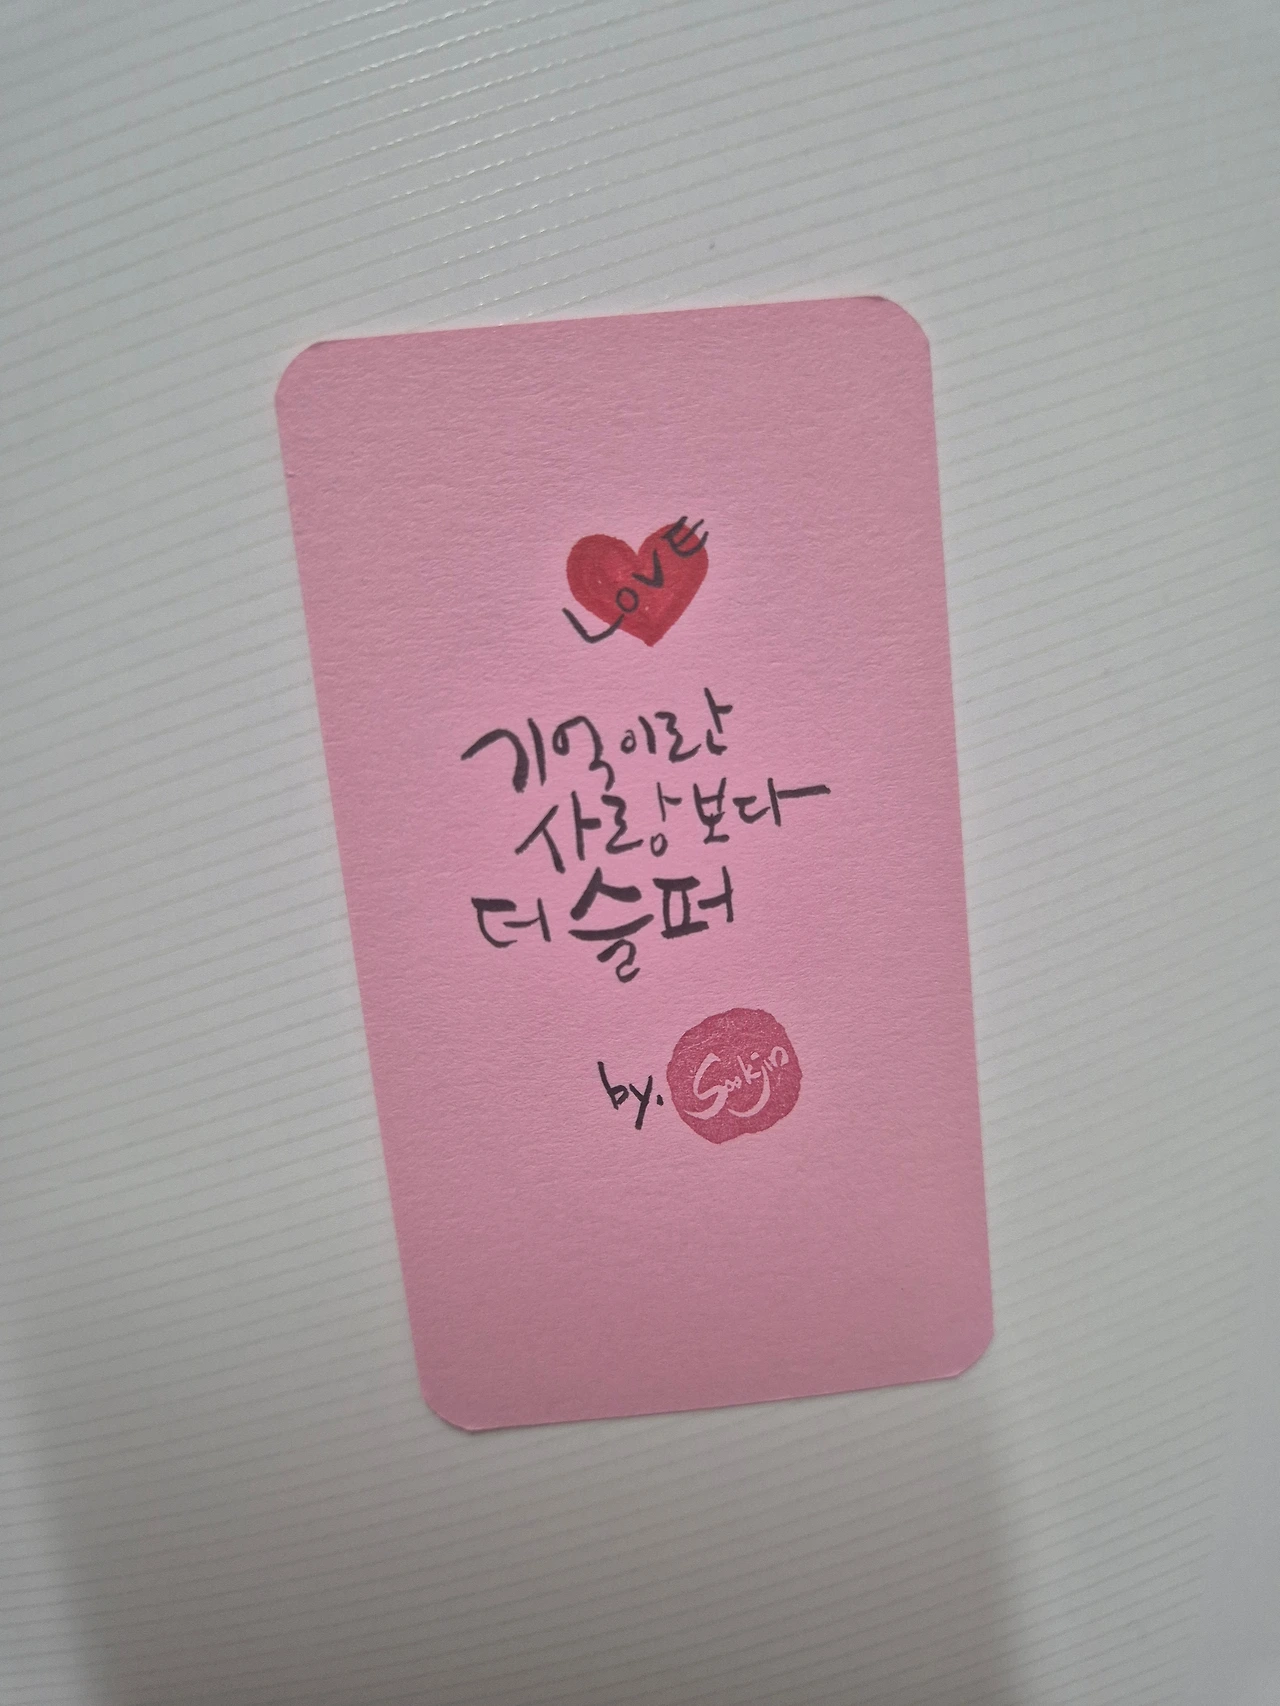 LOVE
기억이란
사랑보다
더 슬퍼
by. Sookjin